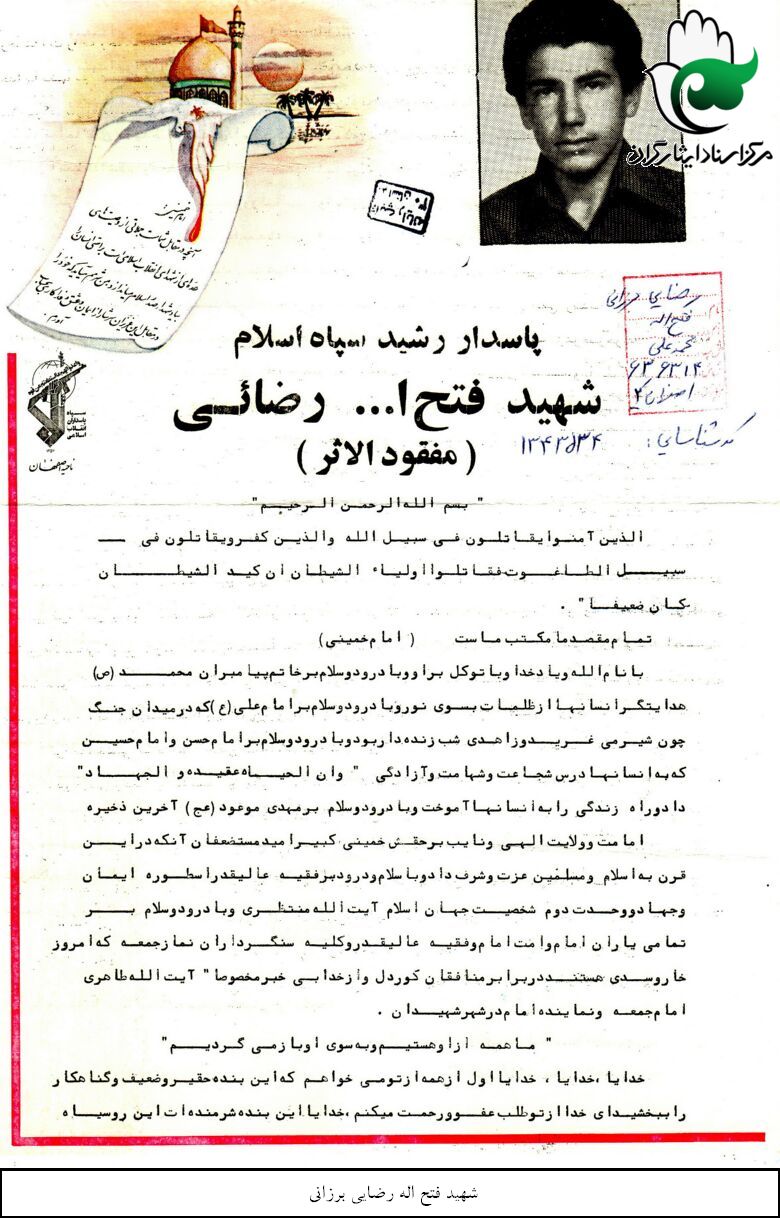 مرکز اسناد ایثارگران
امام خمینی:
رضایی برزانی
فتح اله
محمد علی
۶۳۶۳۱۴
پاسدار رشید سپاه اسلام
شهید فتح ا... رضائی
(مفقود الاثر)
کد شناسایی: ۱۳۴۳۵۳۴
سپاه
پاسداران
انقلاب
اسلامی
ناحیه اصفهان
" بسم الله الرحمن الرحیم "
الذین آمنوا یقاتلون فی سبیل الله والذین کفرو یقاتلون فی
سبیل الطاغوت فقاتلوا اولیاء الشیطان ان کید الشیطان
کان ضعیفا " .
تمام مقصد ما مکتب ماست ( امام خمینی )
با نام الله و یاد خدا و با توکل بر او و با درود و سلام بر خاتم پیامبران محمد (ص)
هدایتگر انسانها از ظلمات بسوی نور و با درود و سلام بر امام علی (ع) که در میدان جنگ
چون شیر می غرید و زاهدی شب زنده دار بود و با درود و سلام بر امام حسن و امام حسین
که به انسانها درس شجاعت و شهامت و آزادگی " وان الحیاه عقیده و الجهاد "
داد و راه زندگی را به انسانها آموخت و با درود و سلام بر مهدی موعود (عج) آخرین ذخیره
امامت و ولایت الهی و نایب بر حقش خمینی کبیر امید مستضعفان آنکه در این
قرن به اسلام و مسلمین عزت و شرف داد و با سلام و درود بر فقیه عالیقدر اسطوره ایمان
و جهاد و وحدت دوم شخصیت جهان اسلام آیت الله منتظری و با درود و سلام بر
تمامی یاران امام و امت امام و فقیه عالیقدر و کلیه سنگرداران نماز جمعه که امروز
خار و سدی هستند در برابر منافقان کوردل و از خدا بی خبر مخصوصا " آیت الله طاهری
امام جمعه و نماینده امام در شهر شهیدان .
" ما همه از او هستیم و به سوی او باز می گردیم "
خدایا ، خدایا ، خدایا اول از همه از تو می خواهم که این بنده حقیر و ضعیف و گناهکار
را ببخشید ای خدا از تو طلب عفو و رحمت میکنم ، خدایا این بنده شرمنده ات این روسیاه
شهید فتح اله رضایی برزانی